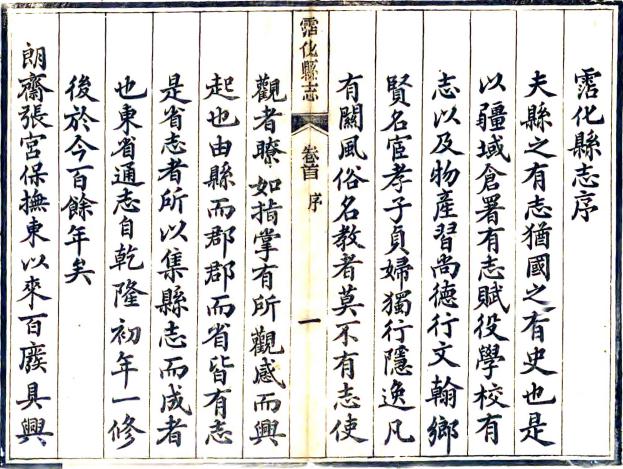 霑化縣志序
夫縣之有志猶國之有史也是
以疆域倉署有志賦役學校有
志以及物產習尚德行文翰鄉
賢名宦孝子貞婦獨行隱逸凡
有關風俗名教者莫不有志使
霑化縣志 卷首 序 一
觀者瞭如指掌有所觀感而興
起也由縣而郡郡而省皆有志
是省志者所以集縣志而成者
也東省通志自乾隆初年一修
後於今百餘年矣
朗齋張宮保撫東以來百廢具興